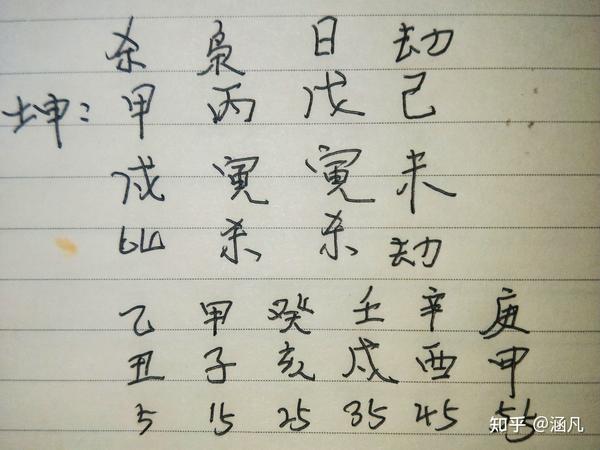 杀 枭 日 劫
坤：甲 丙 戊 己
戌 寅 寅 未
比 杀 杀 劫
乙 甲 癸 壬 辛 庚
丑 子 亥 戌 酉 申
5 15 25 35 45 55
知乎 @涵凡